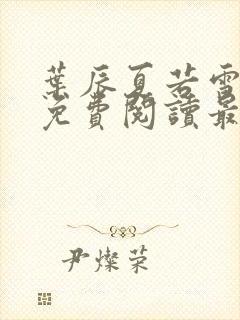 葉辰夏若雪
免費閱讀最
尹燦榮